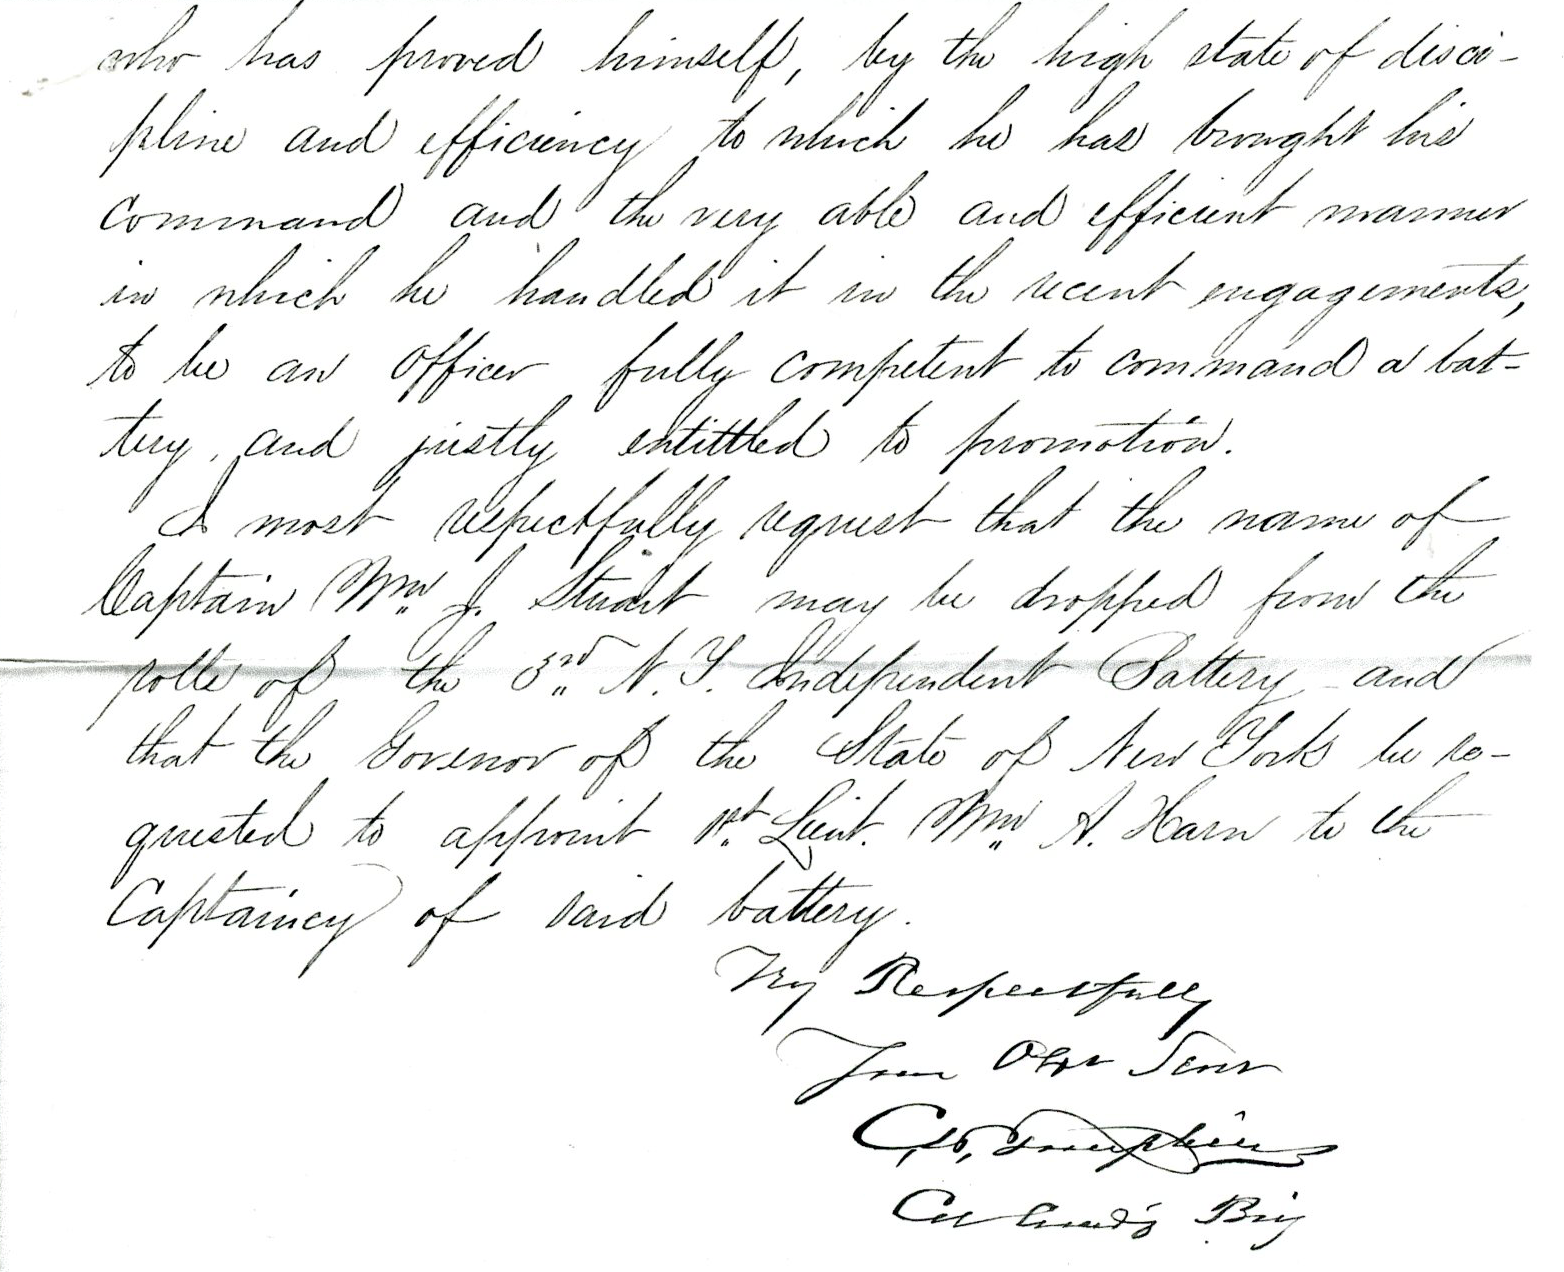 who has proved himself, by the high state of disci-
pline and efficiency to which he has brought his
command and the very able and efficient manner
in which he handled it in the recent engagements,
to be an officer fully competent to command a bat-
tery, and justly entittled to promotion.
I most respectfully request that the name of
Captain Wm J. Stuart may be dropped from the
rolls of the 3rd N. Y. Independent Battery and
that the Govenor of the State of New York be re-
quested to appoint 1st Lieut. Wm A. Harn to the
Captaincy of said battery.
Very Respectfully
Your Obt Servt
C. H. Tompkins
Col Comd'g Brig